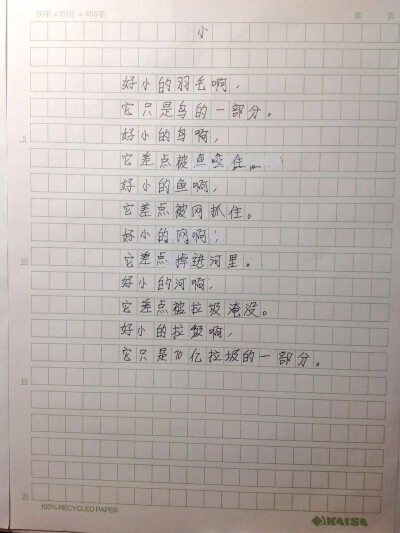 20字 x 20行 = 400字
第 页
小
好小的羽毛啊，
它只是鸟的一部分。
好小的鸟啊，
5
它差点被鱼咬住。
好小的鱼啊，
它差点被网抓住。
好小的网啊，
10
它差点掉进河里。
好小的河啊，
它差点被垃圾淹没。
好小的垃圾啊，
它只是70亿垃圾的一部分。
15
20
100% RECYCLED PAPER
KAISA